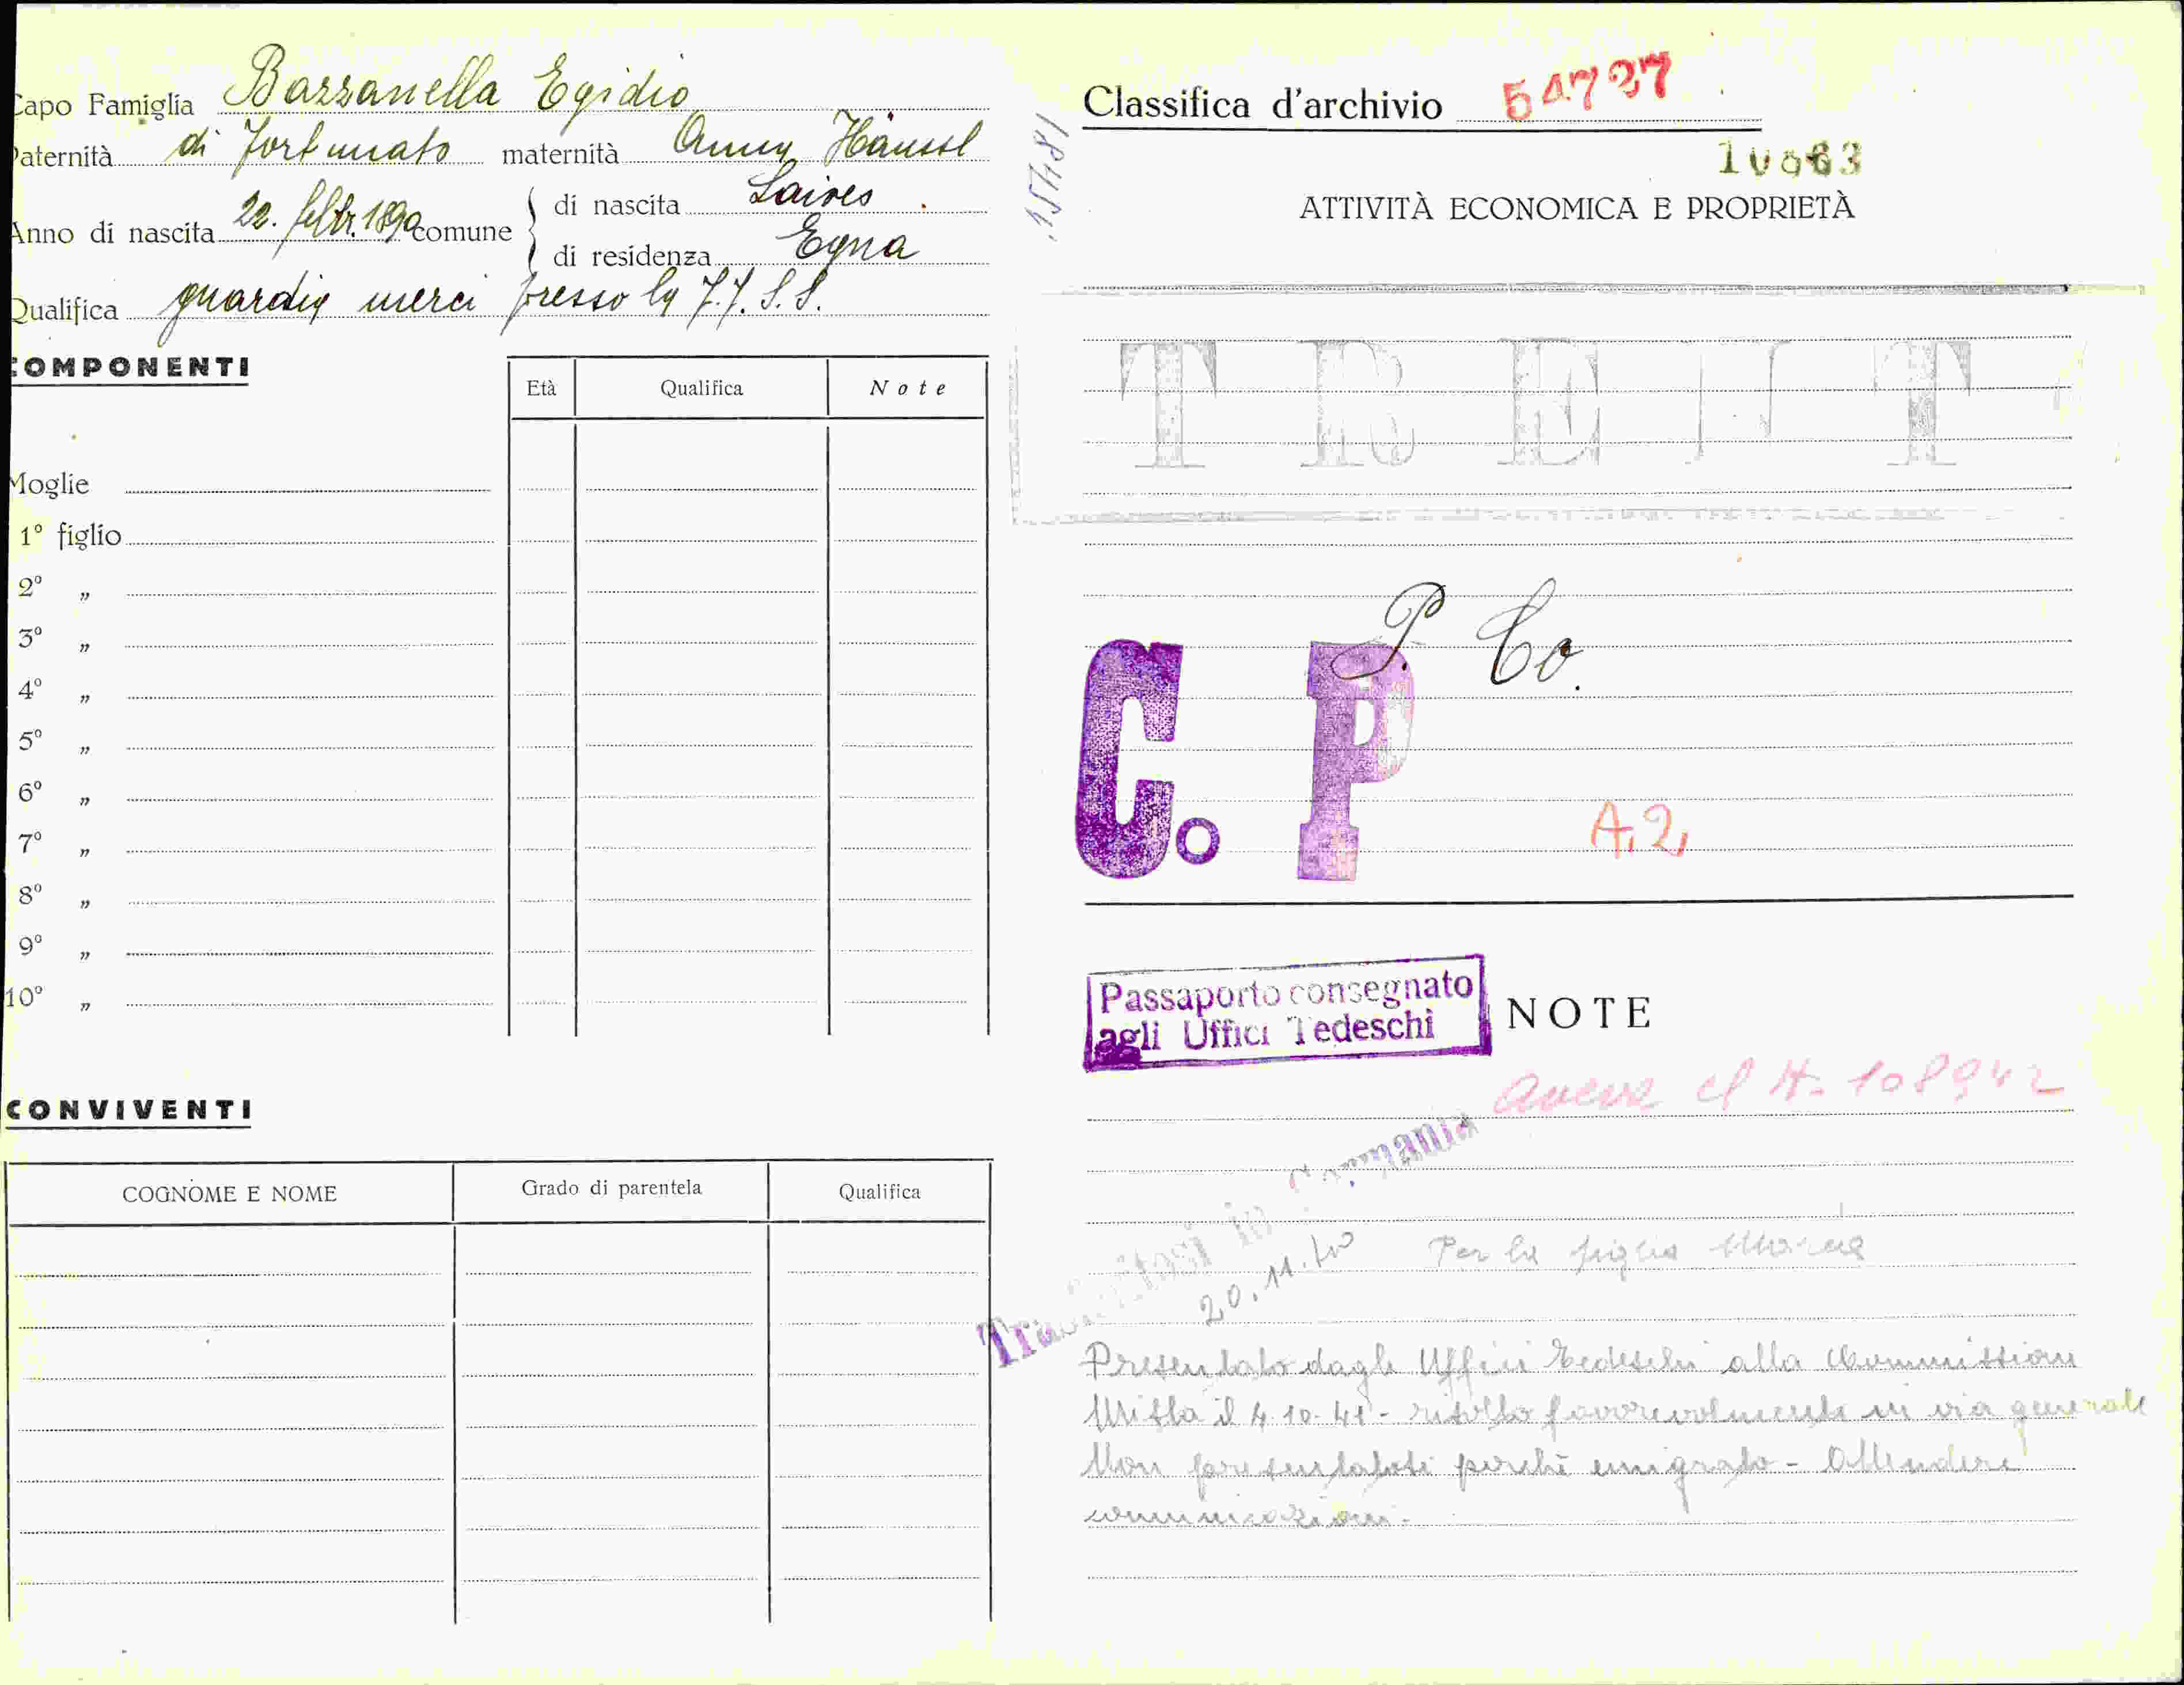 Capo Famiglia Bazzanella Egidio
Paternità di Fortunato maternità Anna Häussl
Anno di nascita 22. febbr. 1890 comune
di nascita Laives
di residenza Egna
Qualifica guardia merci presso la FF. S. S.
COMPONENTI
Età Qualifica Note
Moglie
1º figlio
2º „
3º „
4º „
5º „
6º „
7º „
8º „
9º „
10º „
CONVIVENTI
COGNOME E NOME Grado di parentela Qualifica
Classifica d'archivio 54727
ATTIVITÀ ECONOMICA E PROPRIETÀ
P. Co.
C. P
A.2
Passaporto consegnato
agli Uffici Tedeschi
NOTE
aveva il N. 108942
Trasferitosi in Germania
20.11.40
Per la figlia Maria
Presentato dagli Uffici Tedeschi alla Commissione
Mista il 4.10.41 - risolto favorevolmente in via generale
Non presentatosi perchè emigrato - Attendere
comunicazioni.